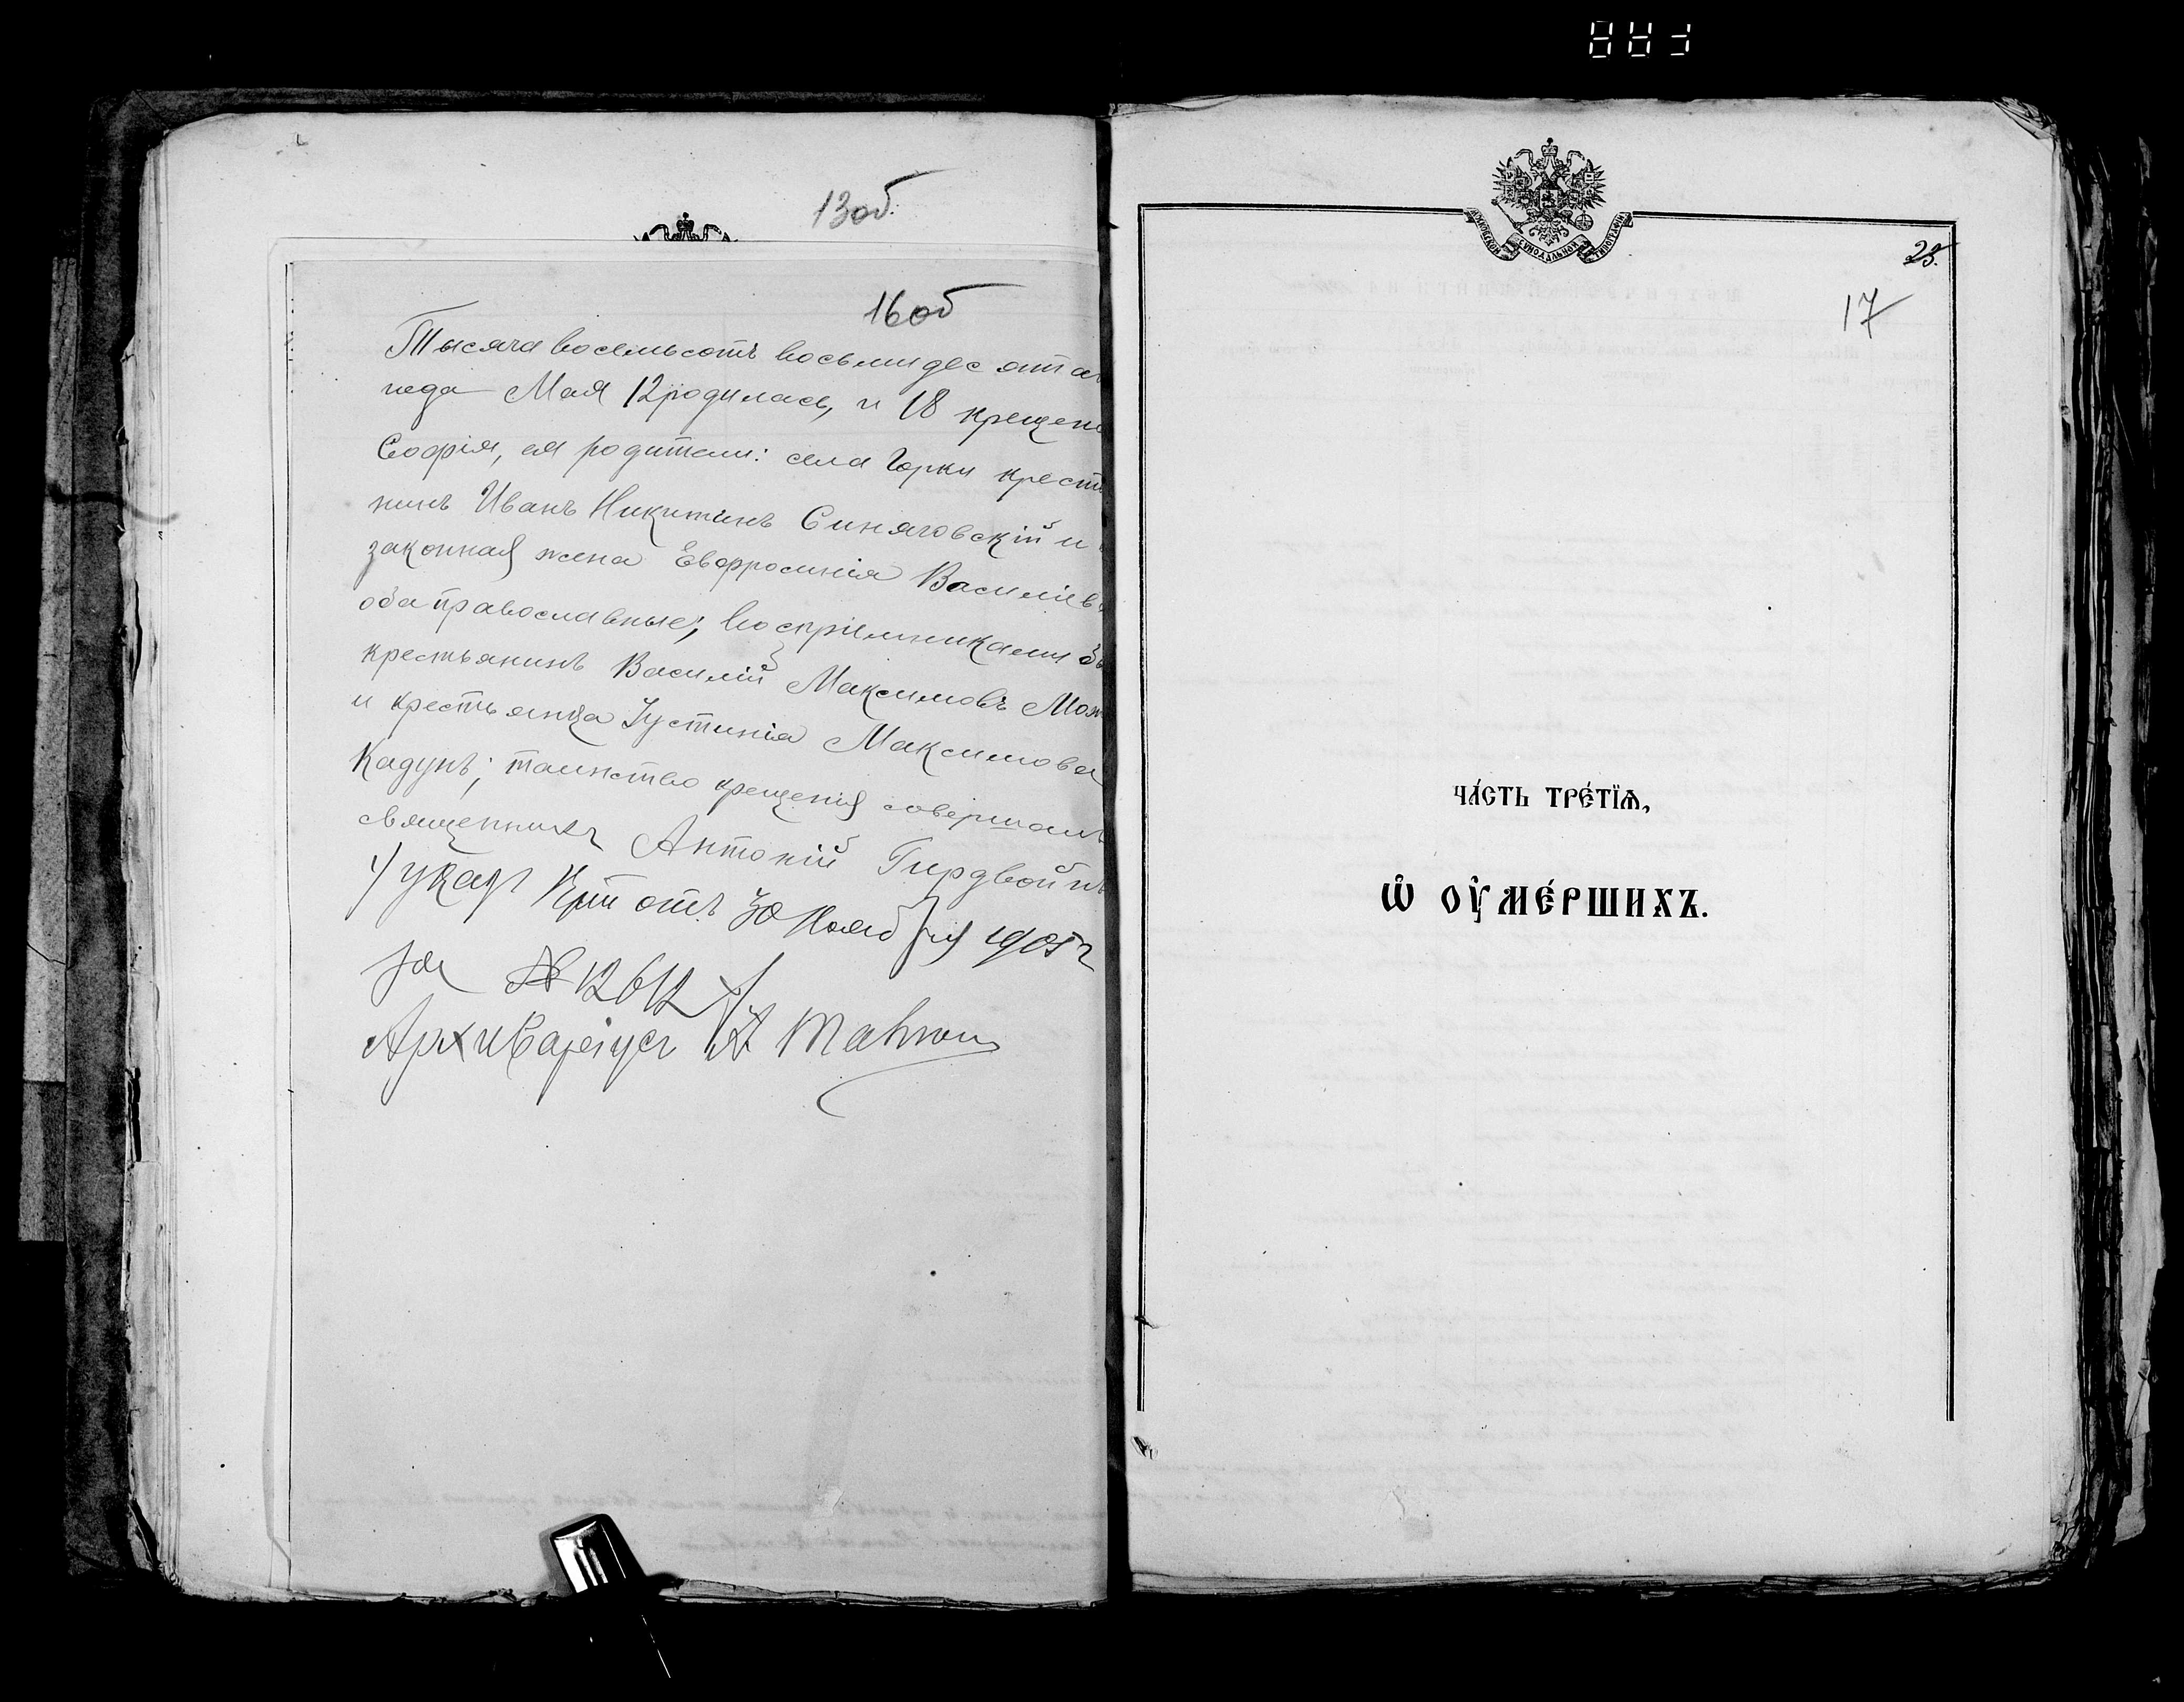 13 об.
16 об
Тысяча восемьсотъ восьмидесятаг
года Мая 12 родилась, и 18 крещен
Софія, ея родители: села Горки крестья
нинъ Иванъ Никитинъ Синяговскій и
законная жена Евфросинія Василіев
оба православные; воспріемниками
крестьянинъ Василій Максимовъ
и крестьянка Іустинія Максимова
Кадунъ; таинство крещенія совершалъ
священникъ Антоній Гирдвойнъ
указъ отъ 30 Ноября 1905 г
за № 12612
Архиваріусъ
СѴНОДАЛЬНОЙ ТИПОГРАФІИ
23.
17
ЧА́СТЬ ТРЕ́ТЇѦ,
Ѡ҆ ОУ҆МЕ́РШИХЪ.